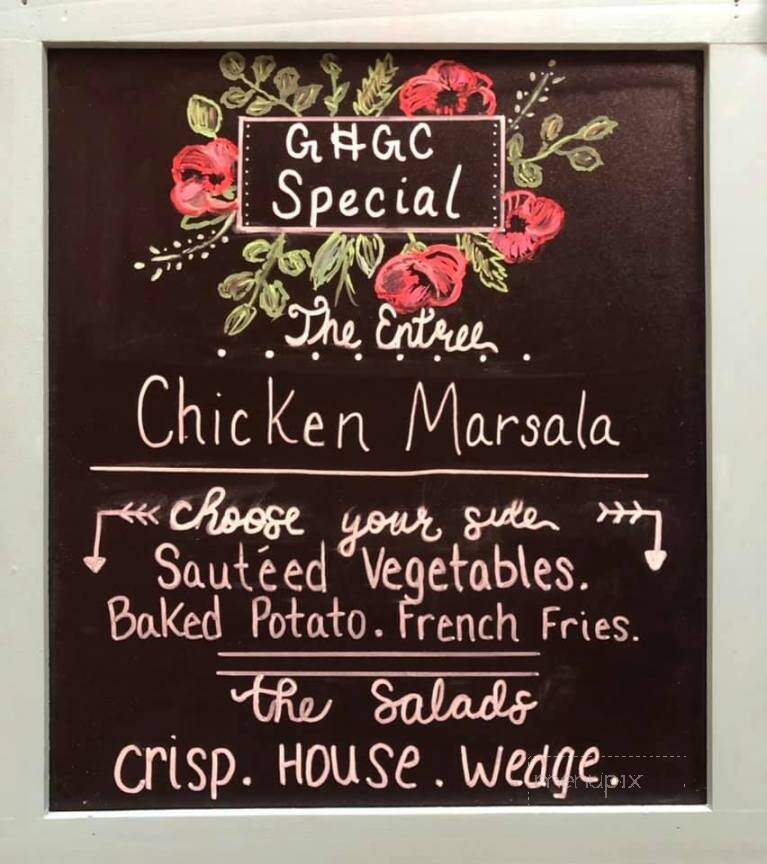 GHGC
Special
The Entree
Chicken Marsala
choose your side
Sautéed Vegetables.
Baked Potato. French Fries.
the Salads
crisp. HOUSE. wedge.
menupix